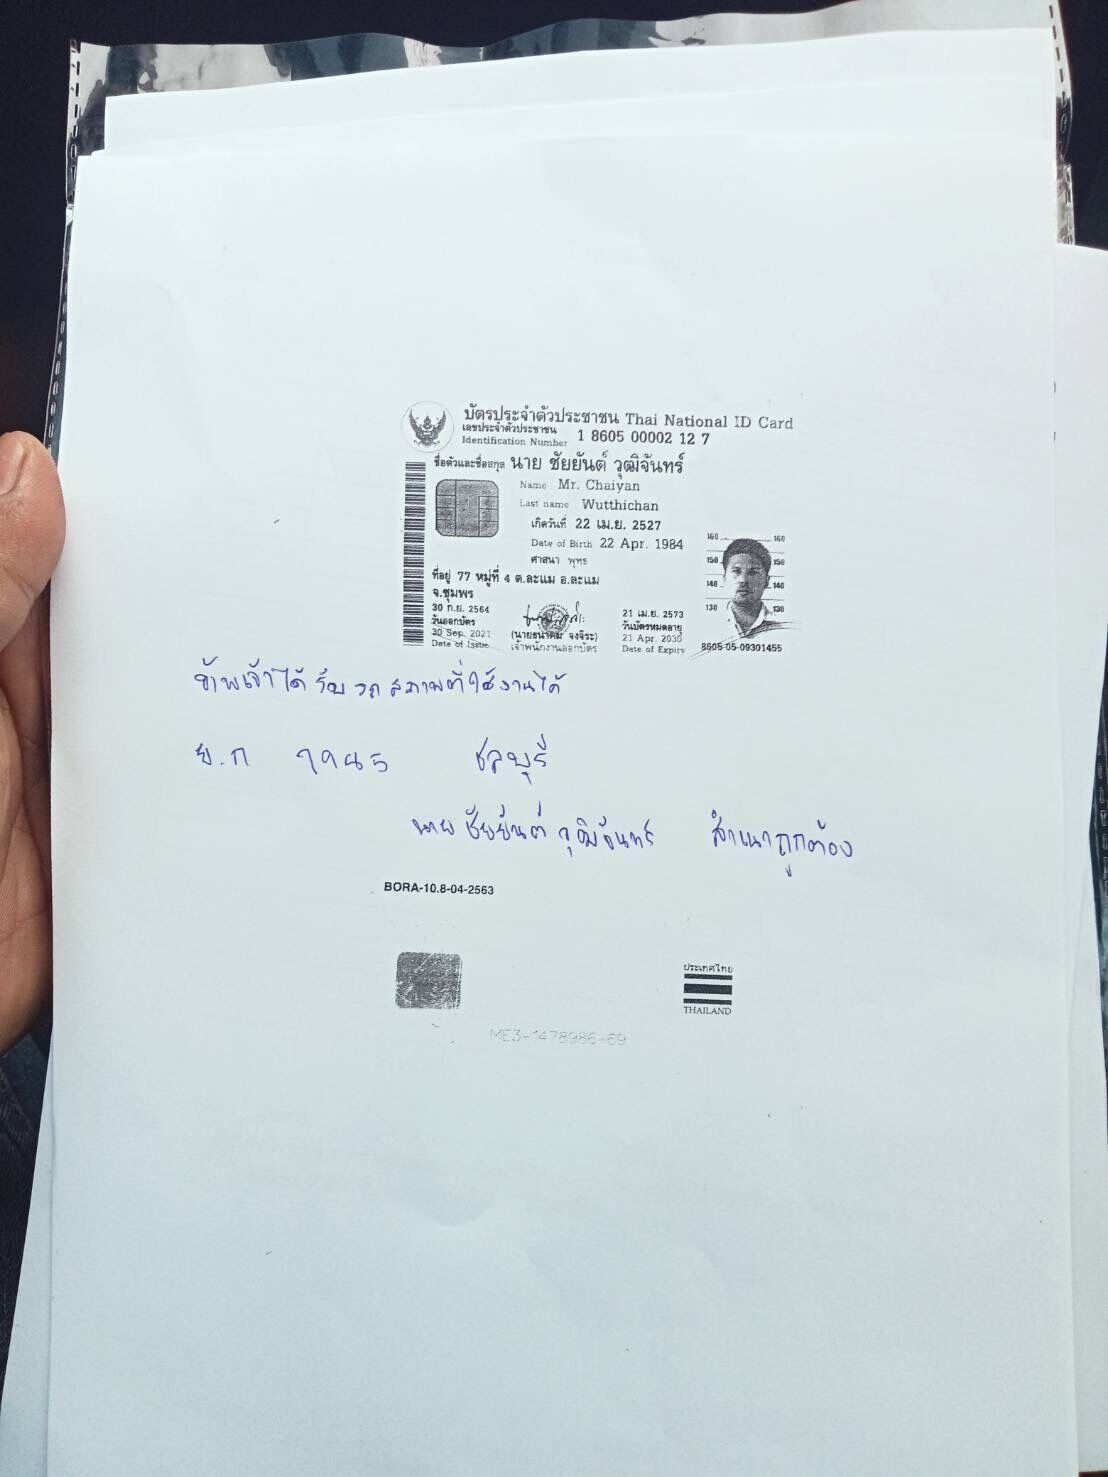 บัตรประจำตัวประชาชน Thai National ID Card
เลขประจำตัวประชาชน
Identification Number 1 8605 00002 12 7
ชื่อตัวและชื่อสกุล นาย ชัยยันต์ วุฒิจันทร์
Name Mr. Chaiyan
Last name Wutthichan
เกิดวันที่ 22 เม.ย. 2527
Date of Birth 22 Apr. 1984
ศาสนา พุทธ
ที่อยู่ 77 หมู่ที่ 4 ต.ละแม อ.ละแม
จ.ชุมพร
30 ก.ย. 2564
วันออกบัตร
30 Sep. 2021
Date of Issue
(นายธนาคม จงจิระ)
เจ้าพนักงานออกบัตร
21 เม.ย. 2573
วันบัตรหมดอายุ
21 Apr. 2030
Date of Expiry
160 160
150 150
140 140
130 130
8605-05-09301455
ข้าพเจ้าได้รับรถสภาพที่ใช้งานได้
ชลบุรี
นาย ชัยยันต์ วุฒิจันทร์ สำเนาถูกต้อง
BORA-10.8-04-2563
ประเทศไทย
THAILAND
ME3-1478986-69